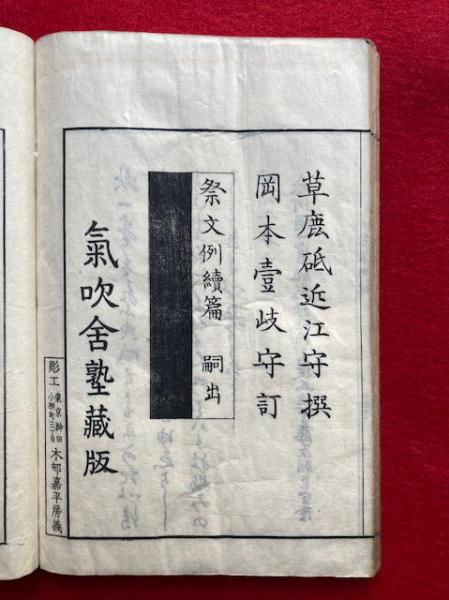 草鹿砥近江守撰
岡本壹岐守訂
祭文例續篇 嗣出
氣吹舍塾藏版
彫工 東京神田小柳町三丁目 木邨嘉平房義